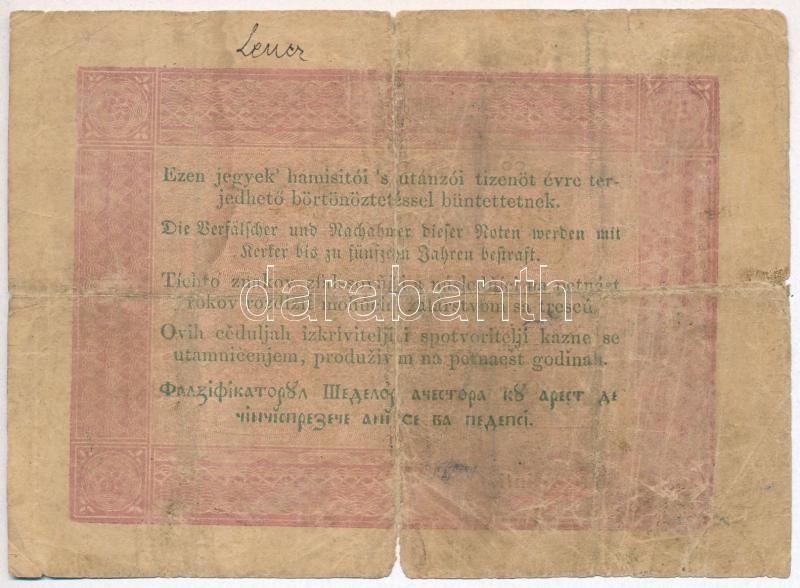 Lencz
Ezen jegyek' hamisitói 's utánzói tizenöt évre ter-
jedhető börtönöztetéssel büntettetnek.
Die Verfälscher und Nachahmer dieser Noten werden mit
Kerker bis zu fünfzehn Jahren bestraft.
Tíchto znakov na petnást
rokov mohúcím se trescú
darabanth
Ovih cĕduljah izkrivitelji i spotvoritelji kazne se
utamničenjem, produživim na petnaest godinah.
Фалзіфікаторꙋл Шеделор ачестора кꙋ арест де
чінчіспрезече ані се ва педепсі.